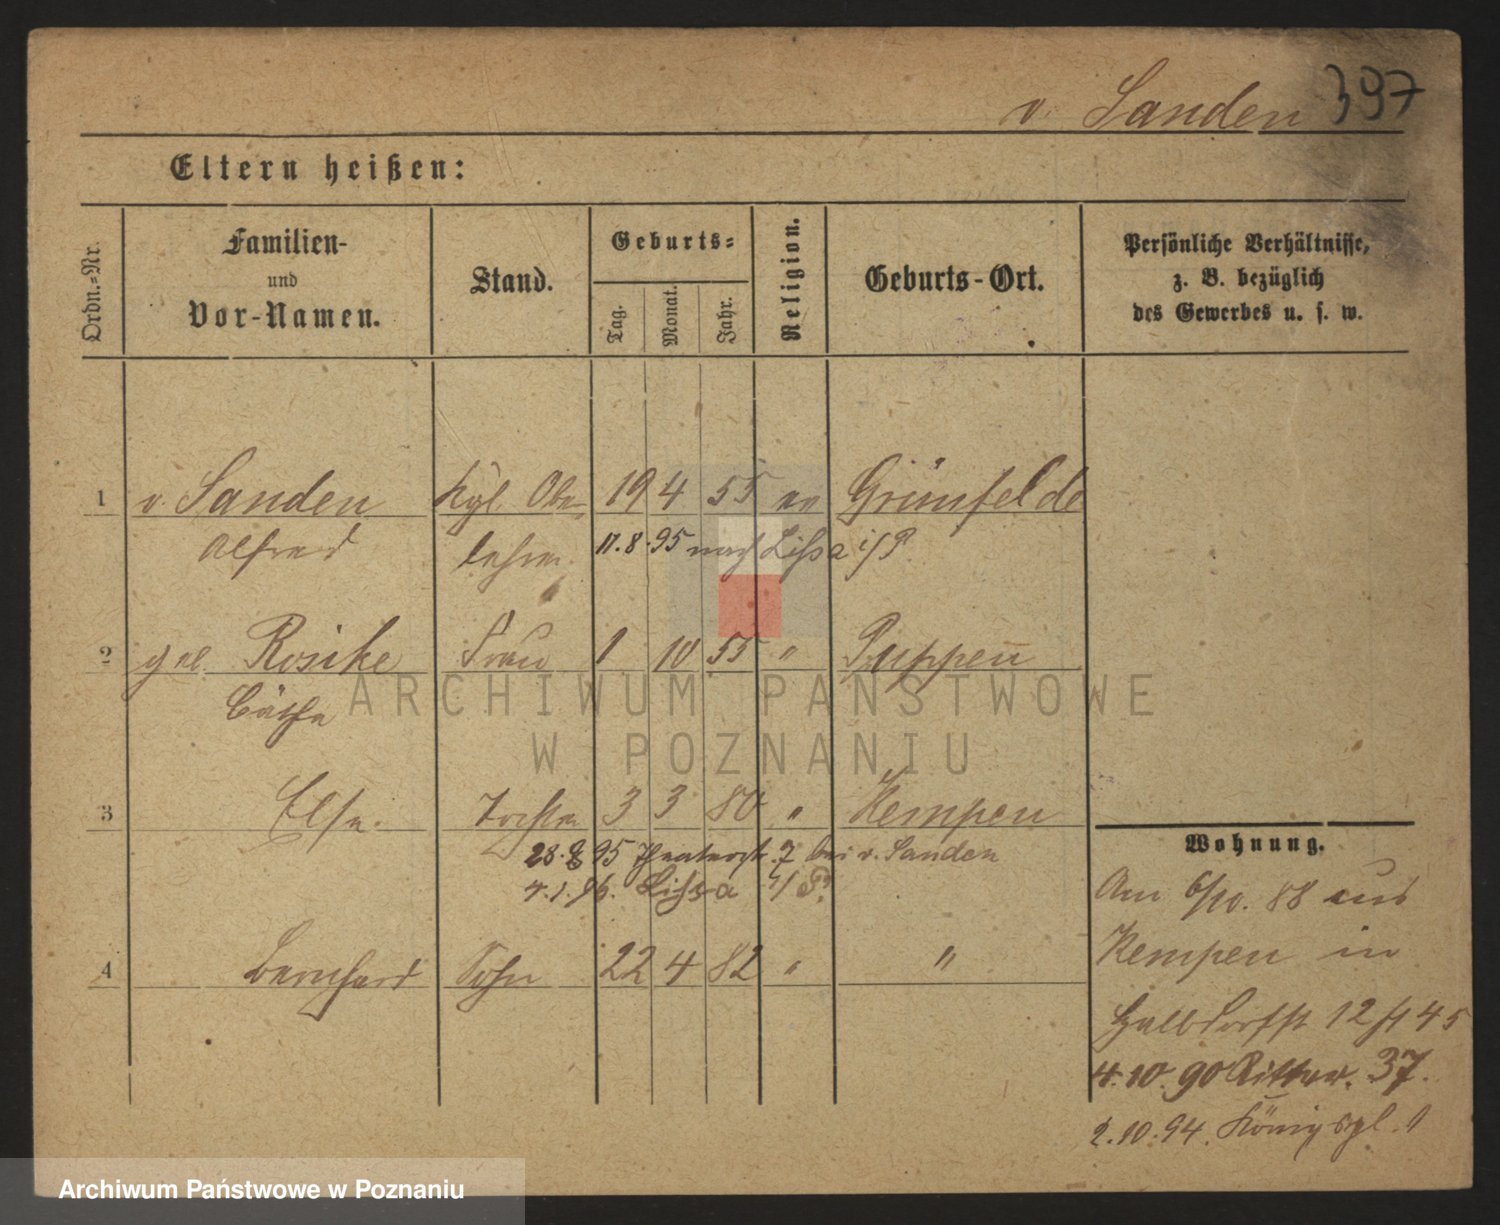 v. Sanden 397
Eltern heißen:
Ordn.=Nr.
Familien-
und
Vor-Namen.
Stand.
Geburts=
Tag.
Monat.
Jahr.
Religion.
Geburts-Ort.
Persönliche Verhältnisse,
z. B. bezüglich
des Gewerbes u. s. w.
1 v. Sanden Kgl. Ober 19 4 55 ev Grünfelde
Alfred lehrer 17.8.95 nach Lissa i/P.
2 geb. Rosicke Frau 1 10 55 " Puppen
Cäthe
ARCHIWUM PAŃSTWOWE
W POZNANIU
3 Else Tochter 3 3 80 " Kempen
28.8 95 Theaterst. 7 bei v. Sanden
4.1.96. Lissa i/P.
4 Bernhard Sohn 22 4 82 " "
Wohnung.
Am 6/10. 88 aus
Kempen in
Halbdorfst 12
4.10.90 Ritter. 37.
2.10.94. Königspl. 1
Archiwum Państwowe w Poznaniu